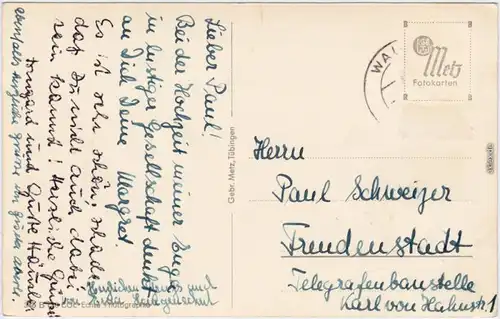 Lieber Paul!
Bei der Hochzeit meiner
in lustiger Gesellschaft denkt
an Dich Deine Margret
Es ist sehr schön, schade
daß Du nicht auch dabei
sein kannst! Herzliche Grüße
Irmgard und
ebenfalls herzliche Grüße
Herzlichen Gruß und
von
Gebr. Metz, Tübingen
WAL
Metz
Fotokarten
Herrn
Paul Schweizer
Freudenstadt
Telegrafenbaustelle
Karl von Hahnstr. 1